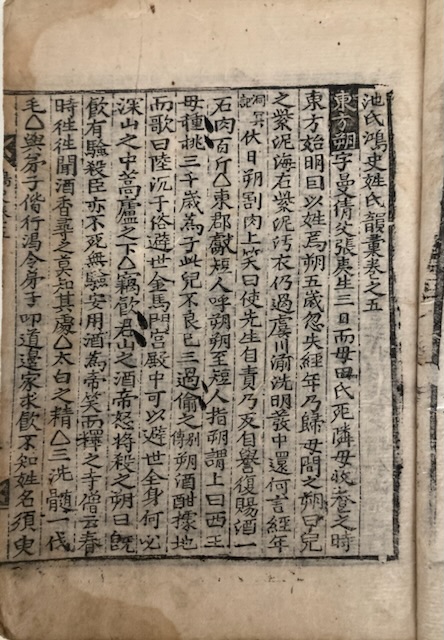 池氏鴻史姓氏韻彙卷之五
東方朔字曼倩父張夷生三日而母田氏死隣母收養之時
東方始明因以姓焉朔五歲忽失經年乃歸母問之朔曰兒
之紫泥海有紫泥汚衣仍過虞川湔洗明發中還何言經年
洞冥記伏日朔割肉上笑曰使先生自責乃反自譽復賜酒一
石肉百斤△東郡獻短人呼朔朔至短人指朔謂上曰西王
母種桃三千歲爲子此兒不良已三過偷之別傳朔酒酣據地
而歌曰陸沉于俗避世金馬門宮殿中可以避世全身何必
深山之中蒿廬之下△竊飮君山之酒帝怒將殺之朔曰旣
飮有驗殺臣亦不死無驗安用酒爲帝笑而釋之于僧云春
時徃徃聞酒香尋之莫知其處△太白之精△三洗髓一伐
毛△與弟子偕行渴令弟子叩道邊家求飮不知姓名須臾